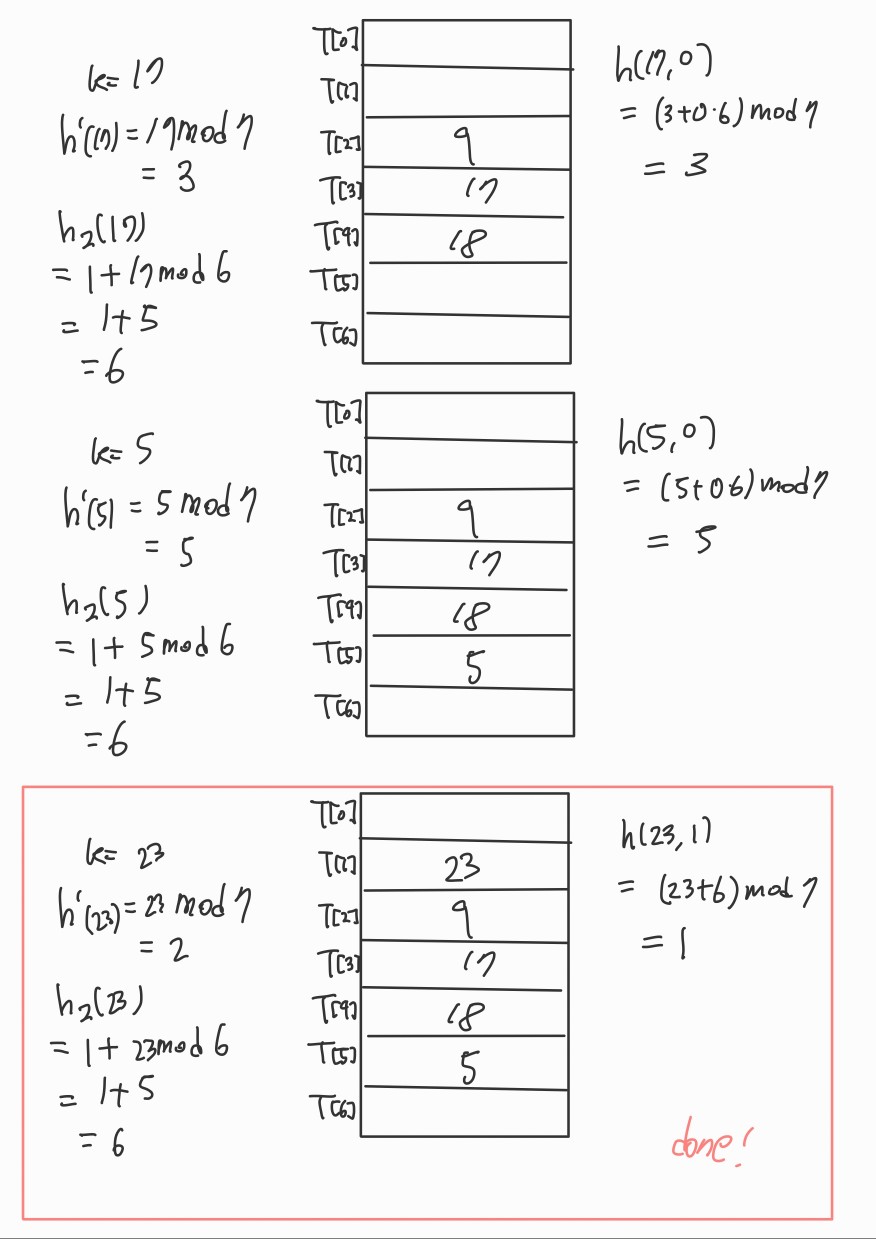 k= 17
h'(17) = 17 mod 7
= 3
h₂(17)
= 1 + 17 mod 6
= 1+5
= 6
T[0]
T[1]
T[2] 9
T[3] 17
T[4] 18
T[5]
T[6]
h(17, 0)
= (3+0·6) mod 7
= 3
k= 5
h'(5) = 5 mod 7
= 5
h₂(5)
= 1 + 5 mod 6
= 1+5
= 6
T[0]
T[1]
T[2] 9
T[3] 17
T[4] 18
T[5] 5
T[6]
h(5, 0)
= (5+0·6) mod 7
= 5
k= 23
h'(23) = 23 mod 7
= 2
h₂(23)
= 1 + 23 mod 6
= 1+5
= 6
T[0]
T[1] 23
T[2] 9
T[3] 17
T[4] 18
T[5] 5
T[6]
h(23, 1)
= (23+6) mod 7
= 1
done!